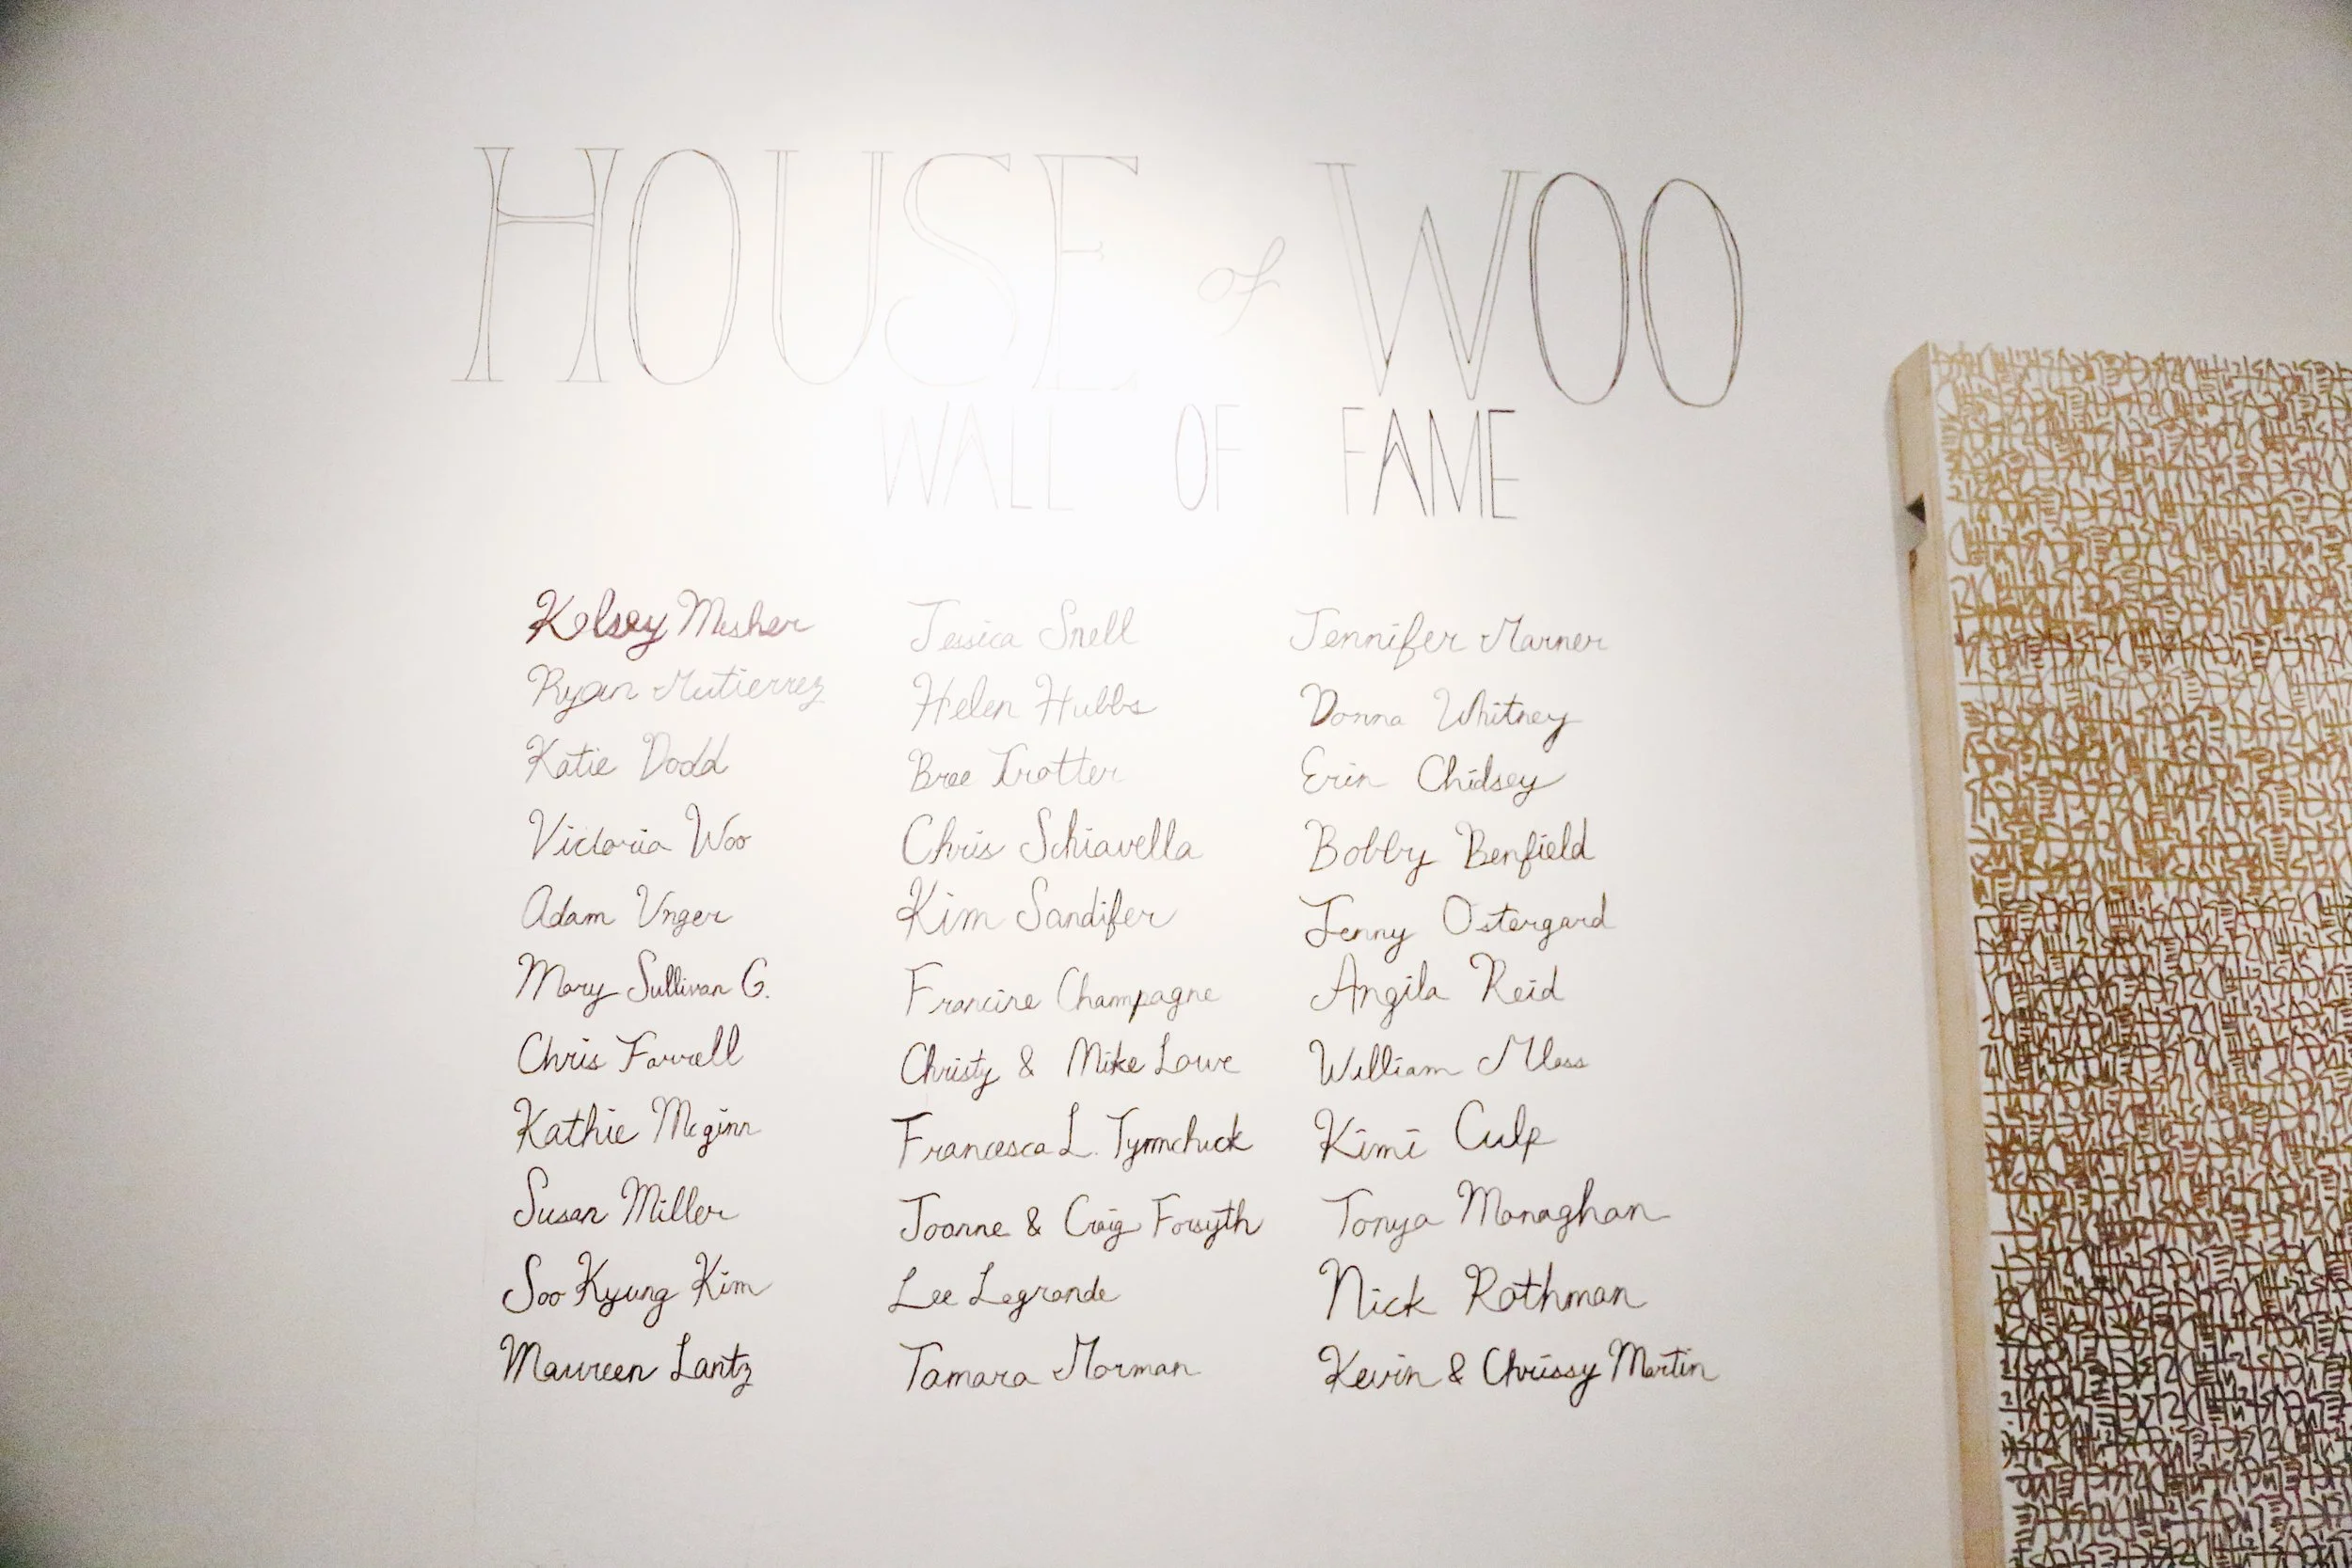 HOUSE of WOO
WALL OF FAME
Kelsey Misher
Ryan Gutierrez
Katie Dodd
Victoria Woo
Adam Unger
Mary Sullivan G.
Chris Farrell
Kathie Mcginn
Susan Miller
Soo Kyung Kim
Maureen Lantz
Jessica Snell
Helen Hubbs
Bree Trotter
Chris Schiavella
Kim Sandifer
Francine Champagne
Christy & Mike Lowe
Francesca L. Tymchuck
Joanne & Craig Forsyth
Lee Legrande
Tamara Gorman
Jennifer Garner
Donna Whitney
Erin Chidsey
Bobby Benfield
Jenny Ostergard
Angila Reid
William
Kimi Culp
Tonya Monaghan
Nick Rothman
Kevin & Chrissy Martin